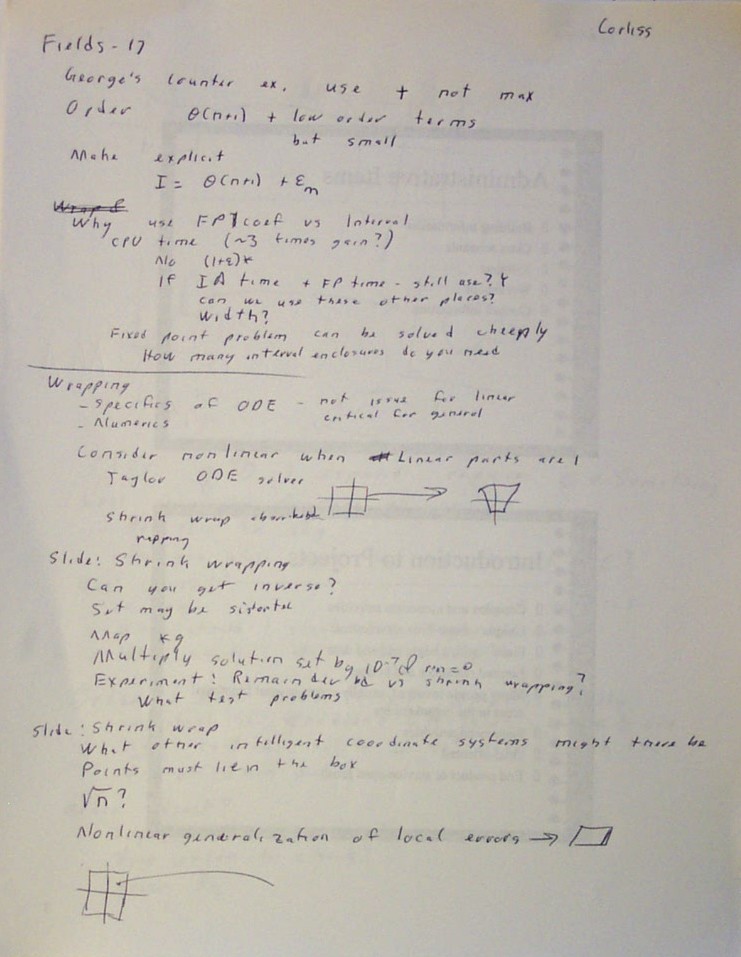 Corliss
Fields - 17
George's counter ex. use + not max
Order θ(n+1) + low order terms
but small
Make explicit
I = θ(n+1) + εm
Wrap
Why use FP coef vs Interval
CPU time (~3 times gain?)
No (1+ε)*
If IA time + FP time - still use?
Can we use these other places?
Width?
Fixed point problem can be solved cheeply
How many interval enclosures do you need
Wrapping
- Specifics of ODE - not issue for linear
critical for general
- Numerics
Consider nonlinear when Linear parts are 1
Taylor ODE solver
Shrink wrap
Slide: Shrink wrapping
Can you get inverse?
Set may be
Map
Multiply solution set by 10⁻⁷ & rm = 0
Experiment: Remainder vs shrink wrapping?
What test problems
Slide: Shrink wrap
What other intelligent coordinate systems might there be
Points must lie in the box
√n ?
Nonlinear generalization of local errors →
Administrative Items
Introduction to Projects